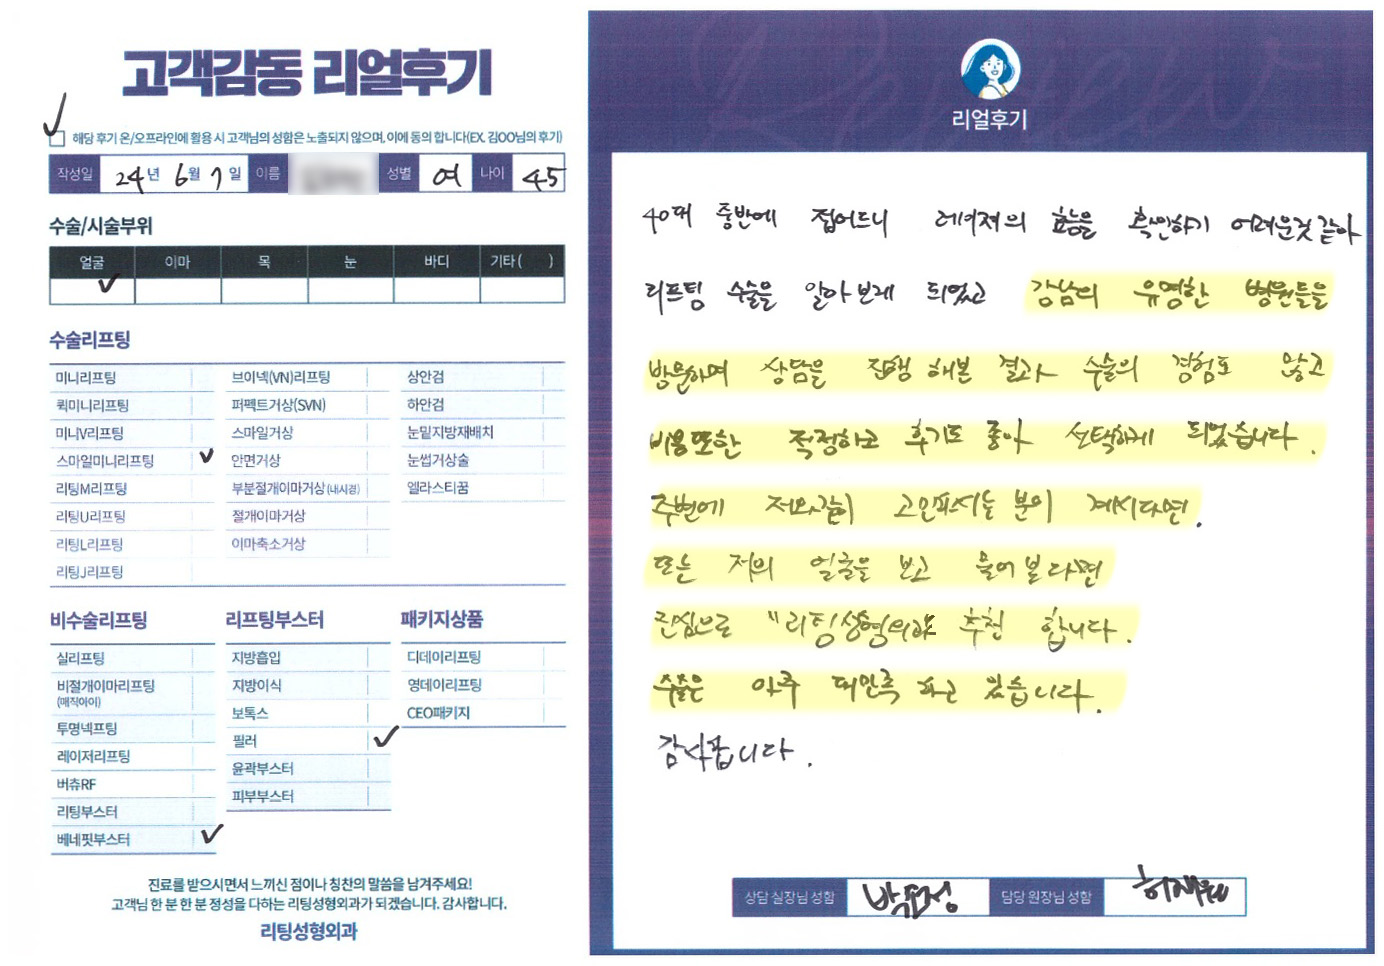 고객감동 리얼후기
해당 후기 온/오프라인에 활용 시 고객님의 성함은 노출되지 않으며, 이에 동의 합니다(EX. 김OO님의 후기)
작성일 24년 6월 7일 이름 성별 여 나이 45
수술/시술부위
얼굴 이마 목 눈 바디 기타 ( )
수술리프팅
미니리프팅 브이넥(VN)리프팅 상안검
퀵미니리프팅 퍼펙트거상(SVN) 하안검
미니V리프팅 스마일거상 눈밑지방재배치
스마일미니리프팅 안면거상 눈썹거상술
리팅M리프팅 부분절개이마거상(내시경) 엘라스티꿈
리팅U리프팅 절개이마거상
리팅L리프팅 이마축소거상
리팅J리프팅
비수술리프팅
실리프팅
비절개이마리프팅
(매직아이)
투명넥프팅
레이저리프팅
버츄RF
리팅부스터
베네핏부스터
리프팅부스터
지방흡입
지방이식
보톡스
필러
윤곽부스터
피부부스터
패키지상품
디데이리프팅
영데이리프팅
CEO패키지
진료를 받으시면서 느끼신 점이나 칭찬의 말씀을 남겨주세요!
고객님 한 분 한 분 정성을 다하는 리팅성형외과가 되겠습니다. 감사합니다.
리팅성형외과
리얼후기
40대 중반에 접어드니 레이저의 효능을 확인하기 어려운것 같아
리프팅 수술을 알아보게 되었고 강남의 유명한 병원들을
방문하며 상담을 진행 해본 결과 수술의 경험도 많고
비용또한 적정하고 후기도 좋아 선택하게 되었습니다.
주변에 저와같이 고민하시는 분이 계시다면.
또는 저의 얼굴을 보고 물어본다면
진심으로 "리팅성형외과 추천 합니다.
수술은 아주 대만족 하고 있습니다.
감사합니다.
상담 실장님 성함 담당 원장님 성함